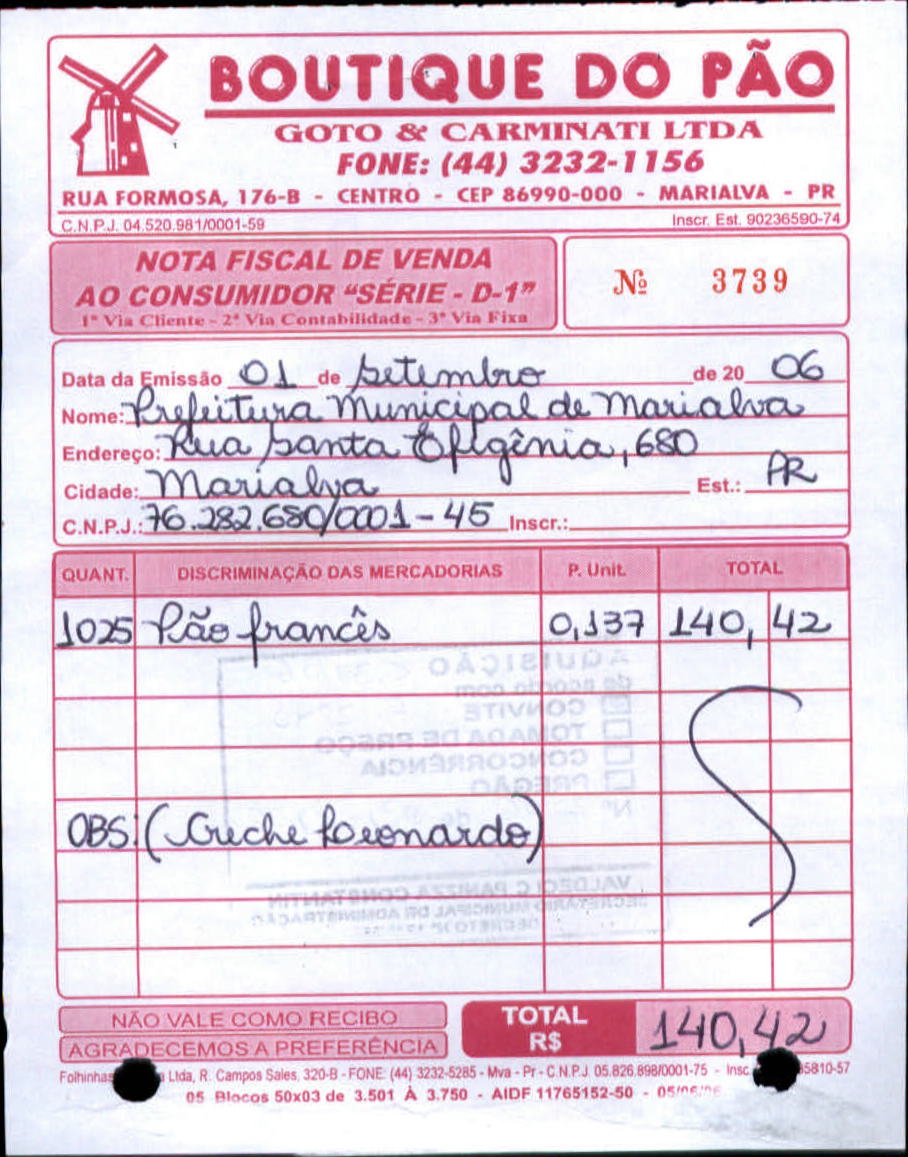 BOUTIQUE DO PÃO
GOTO & CARMINATI LTDA
FONE: (44) 3232-1156
RUA FORMOSA, 176-B - CENTRO - CEP 86990-000 - MARIALVA - PR
C.N.P.J. 04.520.981/0001-59 Inscr. Est. 90236590-74
NOTA FISCAL DE VENDA
AO CONSUMIDOR "SÉRIE - D-1"
1ª Via Cliente - 2ª Via Contabilidade - 3ª Via Fixa
Nº 3739
Data da Emissão 01 de Setembro de 20 06
Nome: Prefeitura Municipal de Marialva
Endereço: Rua Santa Efigênia, 680
Cidade: Marialva Est.: PR
C.N.P.J.: 76.282.680/0001-45 Inscr.:
QUANT. DISCRIMINAÇÃO DAS MERCADORIAS P. Unit. TOTAL
1025 Pão francês 0,137 140,42
AQUISIÇÃO
de acordo com
CONVITE
TOMADA DE PREÇO
CONCORRÊNCIA
PREGÃO
Nº
OBS: (Creche Leonardo)
VALDECI C PANIZZA CONSTANTIN
SECRETARIO MUNICIPAL DE ADMINISTRAÇÃO
DECRETO
NÃO VALE COMO RECIBO
AGRADECEMOS A PREFERÊNCIA
TOTAL
R$ 140,42
Folhinhas Ltda, R. Campos Sales, 320-B - FONE: (44) 3232-5285 - Mva - Pr - C.N.P.J. 05.826.898/0001-75 - Insc 5810-57
05 Blocos 50x03 de 3.501 À 3.750 - AIDF 11765152-50 -